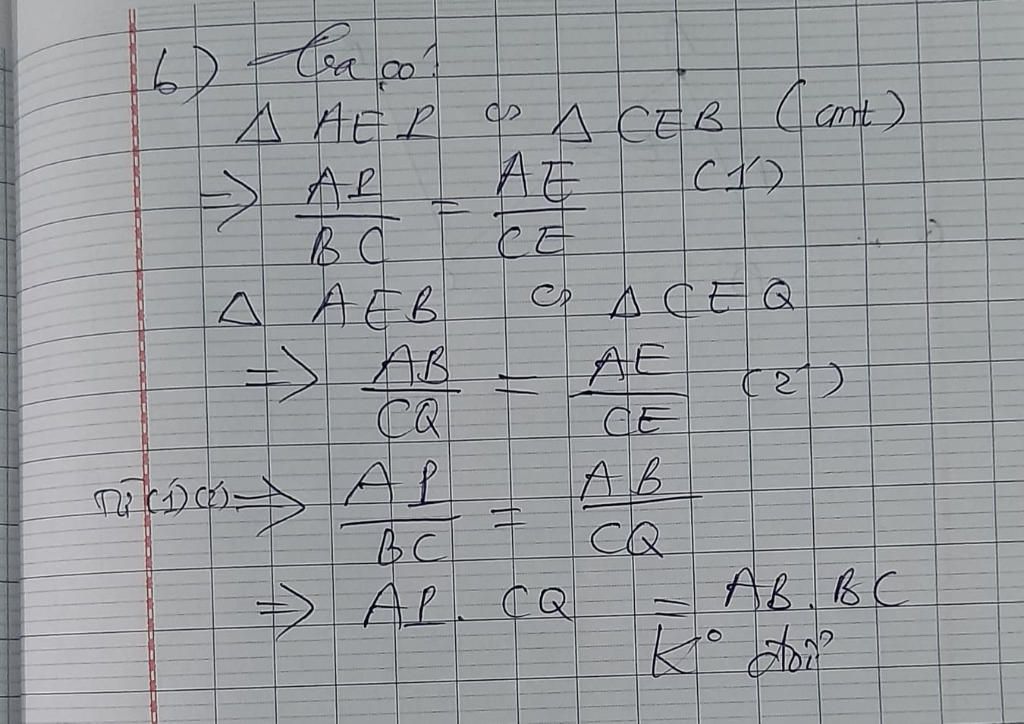 b) Ta có:
Δ AEP ∽ Δ CEB (cmt)
=> AP/BC = AE/CE (1)
Δ AEB ∽ Δ CEQ
=> AB/CQ = AE/CE (2)
Từ (1) (2) => AP/BC = AB/CQ
=> AP. CQ = AB. BC
K° đổi